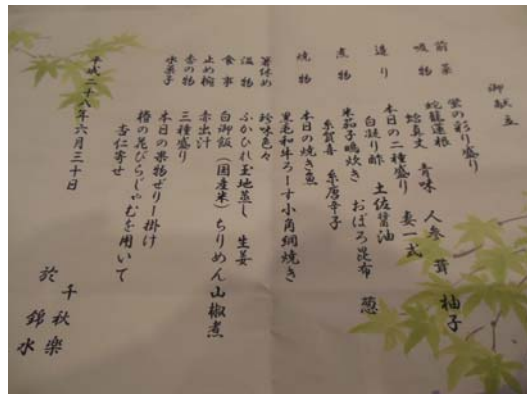 御献立
前菜 蛍の彩り盛り
吸物 蛇籠蓮根 青味 人参 茸 柚子
蛤真丈
造り 本日の二種盛り 妻一式
白凝り酢 土佐醤油
煮物 米茄子鴫炊き おぼろ昆布 葱
糸賀喜 糸唐辛子
焼物 本日の焼き魚
黒毛和牛ろーす小角網焼き
箸休め 珍味色々
温物 ふかひれ玉地蒸し 生姜
食事 白御飯(国産米)ちりめん山椒煮
止め椀 赤出汁
香の物 三種盛り
水菓子 本日の果物ぜりー掛け
椿の花びらじゃむを用いて
杏仁寄せ
平成二十八年六月三十日
千秋楽
於 錦水